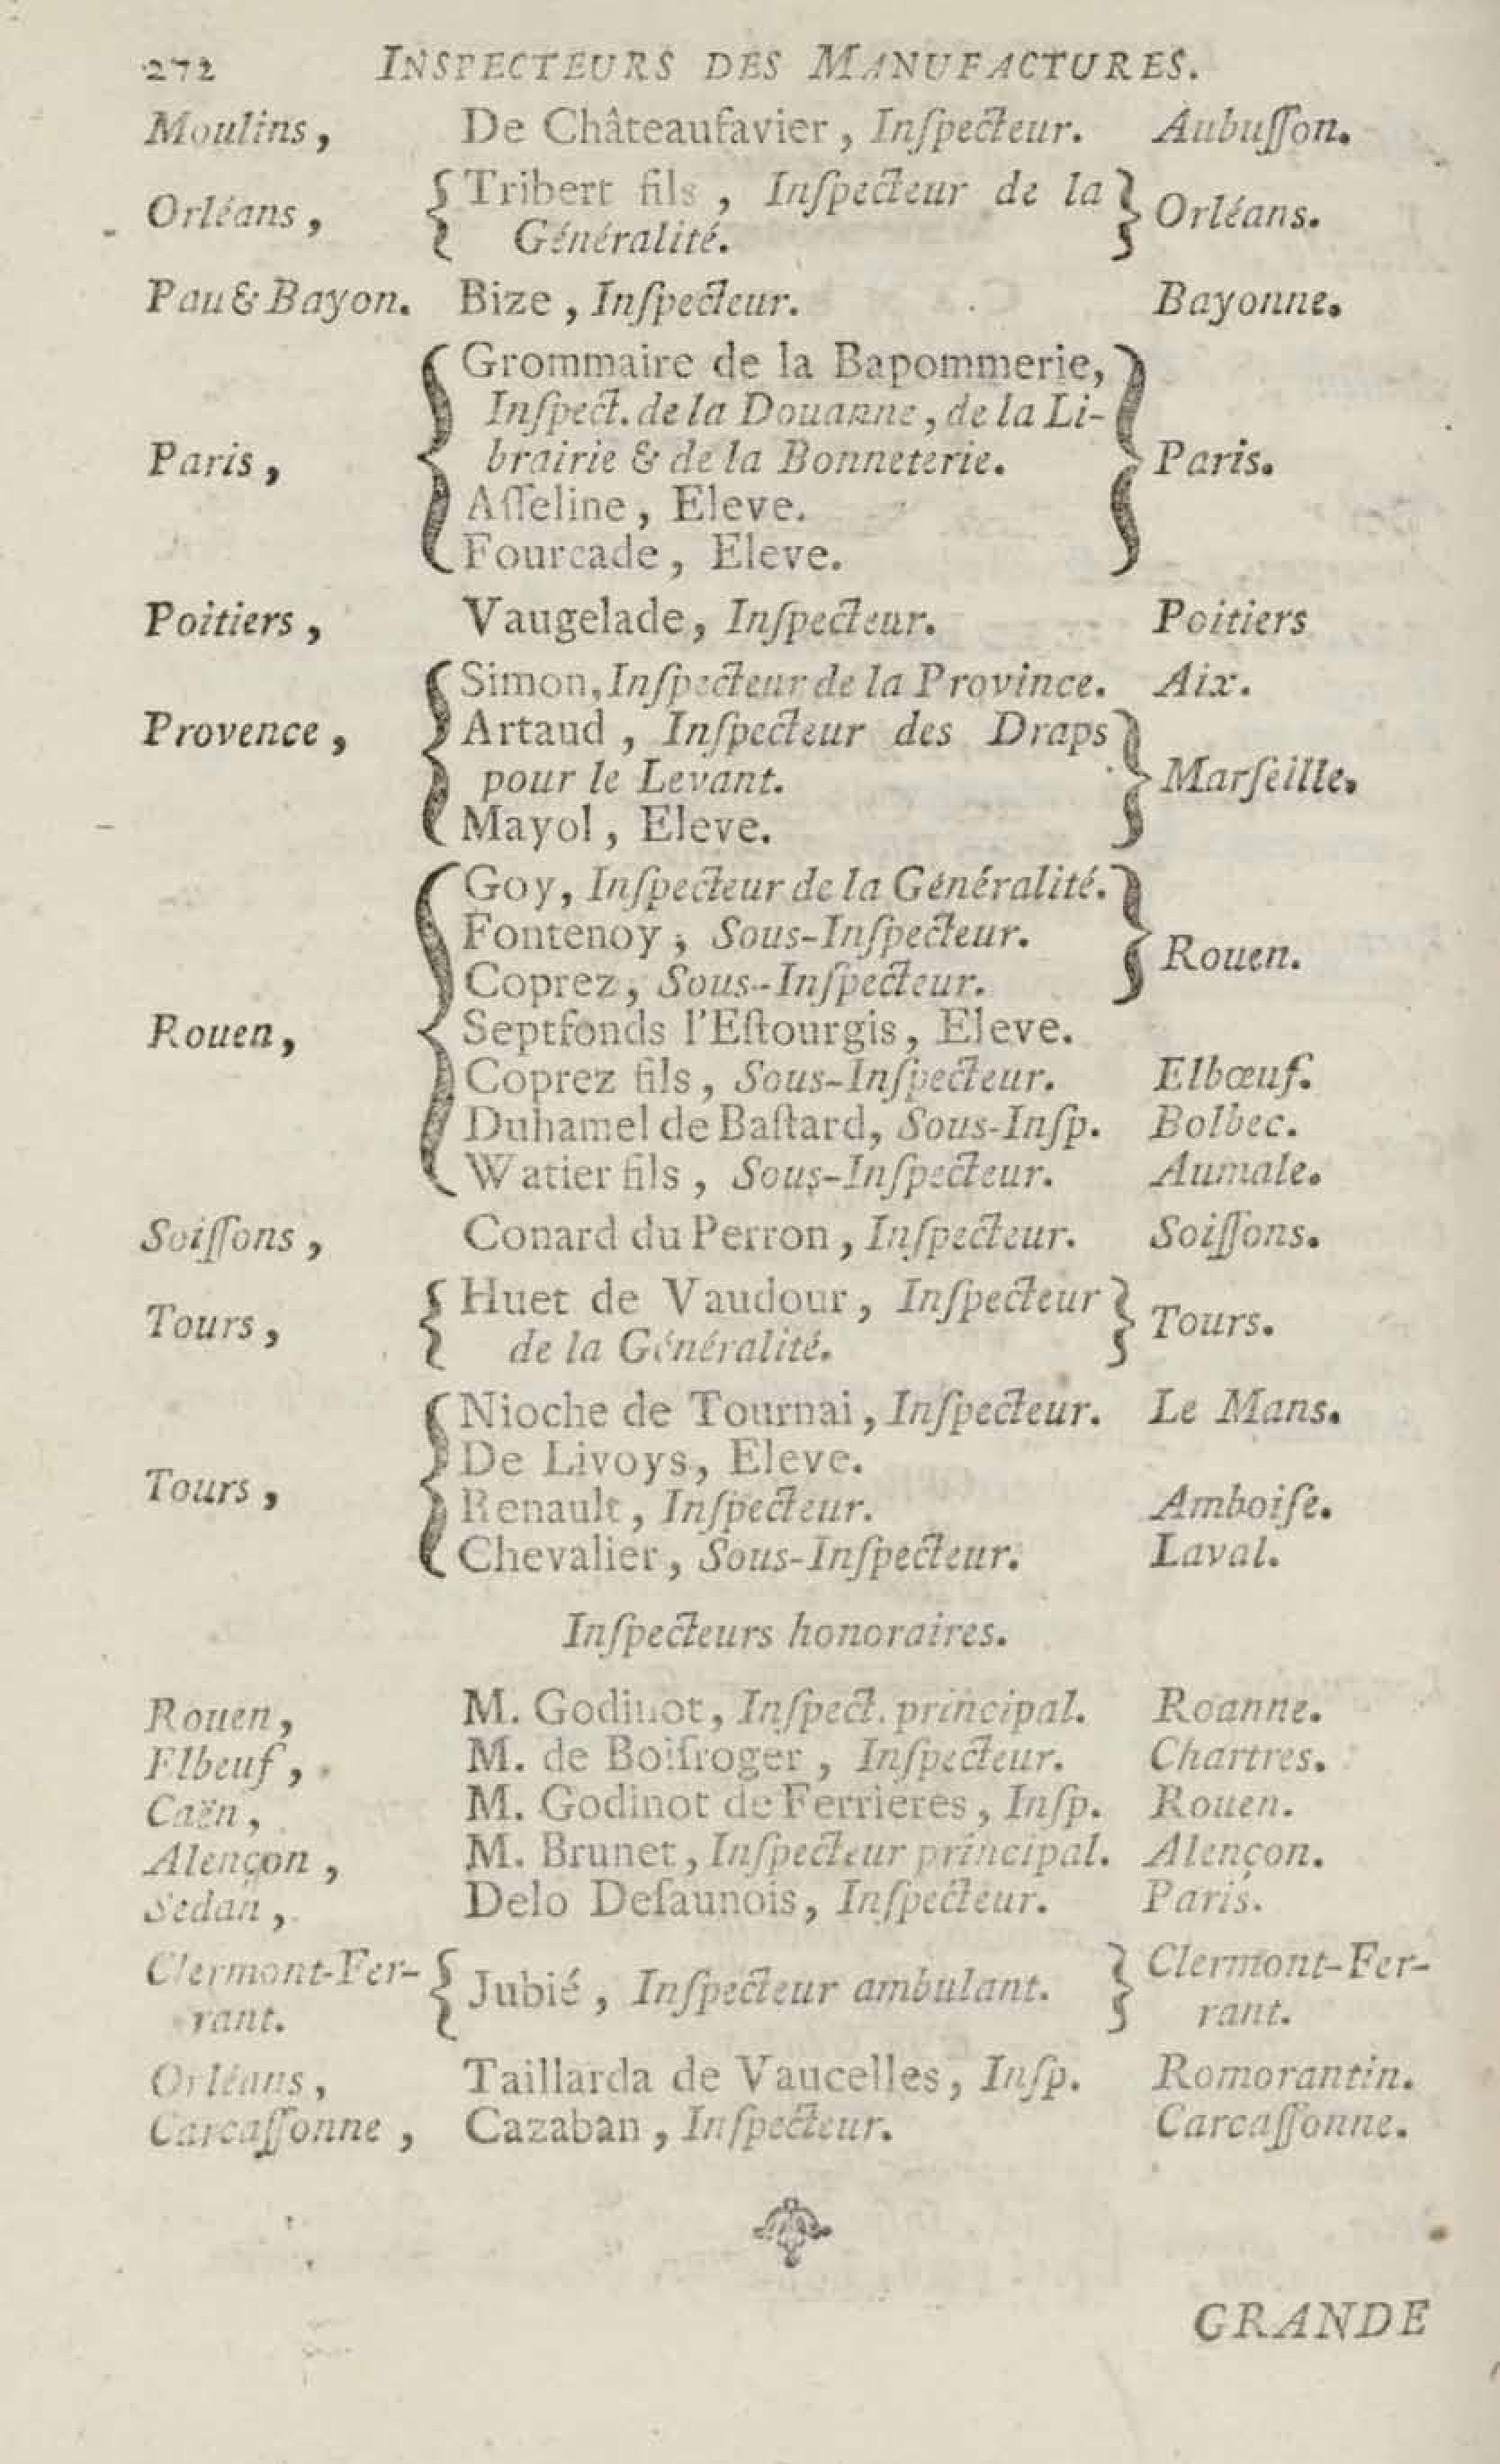 272 INSPECTEURS DES MANUFACTURES.
Moulins, De Châteaufavier, Inſpecteur. Aubuſſon.
Orléans, { Tribert fils, Inſpecteur de la } Orléans.
Généralité.
Pau & Bayon. Bize, Inſpecteur. Bayonne.
Grommaire de la Bapommerie,
Inſpect. de la Douanne, de la Li-
Paris, { brairie & de la Bonneterie. } Paris.
Aſſeline, Eleve.
Fourcade, Eleve.
Poitiers, Vaugelade, Inſpecteur. Poitiers
Simon, Inſpecteur de la Province. Aix.
Provence, { Artaud, Inſpecteur des Draps
pour le Levant. } Marſeille.
Mayol, Eleve.
Goy, Inſpecteur de la Généralité.
Fontenoy, Sous-Inſpecteur. } Rouen.
Coprez, Sous-Inſpecteur.
Rouen, { Septfonds l'Eſtourgis, Eleve.
Coprez fils, Sous-Inſpecteur. Elbœuf.
Duhamel de Baſtard, Sous-Inſp. Bolbec.
Watier fils, Sous-Inſpecteur. Aumale.
Soiſſons, Conard du Perron, Inſpecteur. Soiſſons.
Tours, { Huet de Vaudour, Inſpecteur } Tours.
de la Généralité.
Nioche de Tournai, Inſpecteur. Le Mans.
De Livoys, Eleve.
Tours, { Renault, Inſpecteur. Amboiſe.
Chevalier, Sous-Inſpecteur. Laval.
Inſpecteurs honoraires.
Rouen, M. Godinot, Inſpect. principal. Roanne.
Elbeuf, M. de Boiſroger, Inſpecteur. Chartres.
Caën, M. Godinot de Ferrieres, Inſp. Rouen.
Alençon, M. Brunet, Inſpecteur principal. Alençon.
Sedan, Delo Deſaunois, Inſpecteur. Paris.
Clermont-Fer- { Jubié, Inſpecteur ambulant. } Clermont-Fer-
rant. rant.
Orléans, Taillarda de Vaucelles, Inſp. Romorantin.
Carcaſſonne, Cazaban, Inſpecteur. Carcaſſonne.
GRANDE